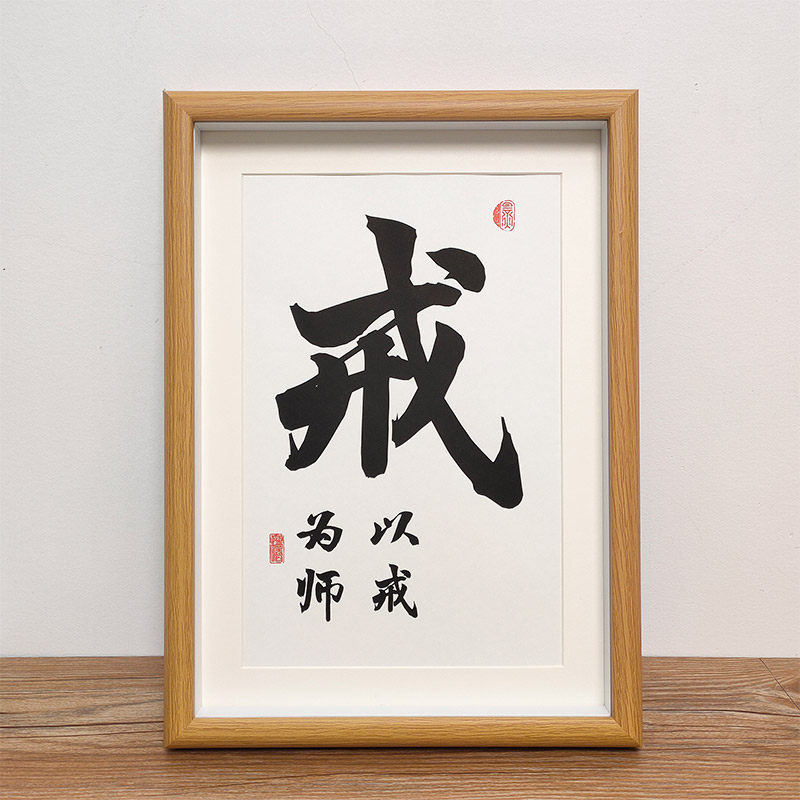 戒
以戒
为师